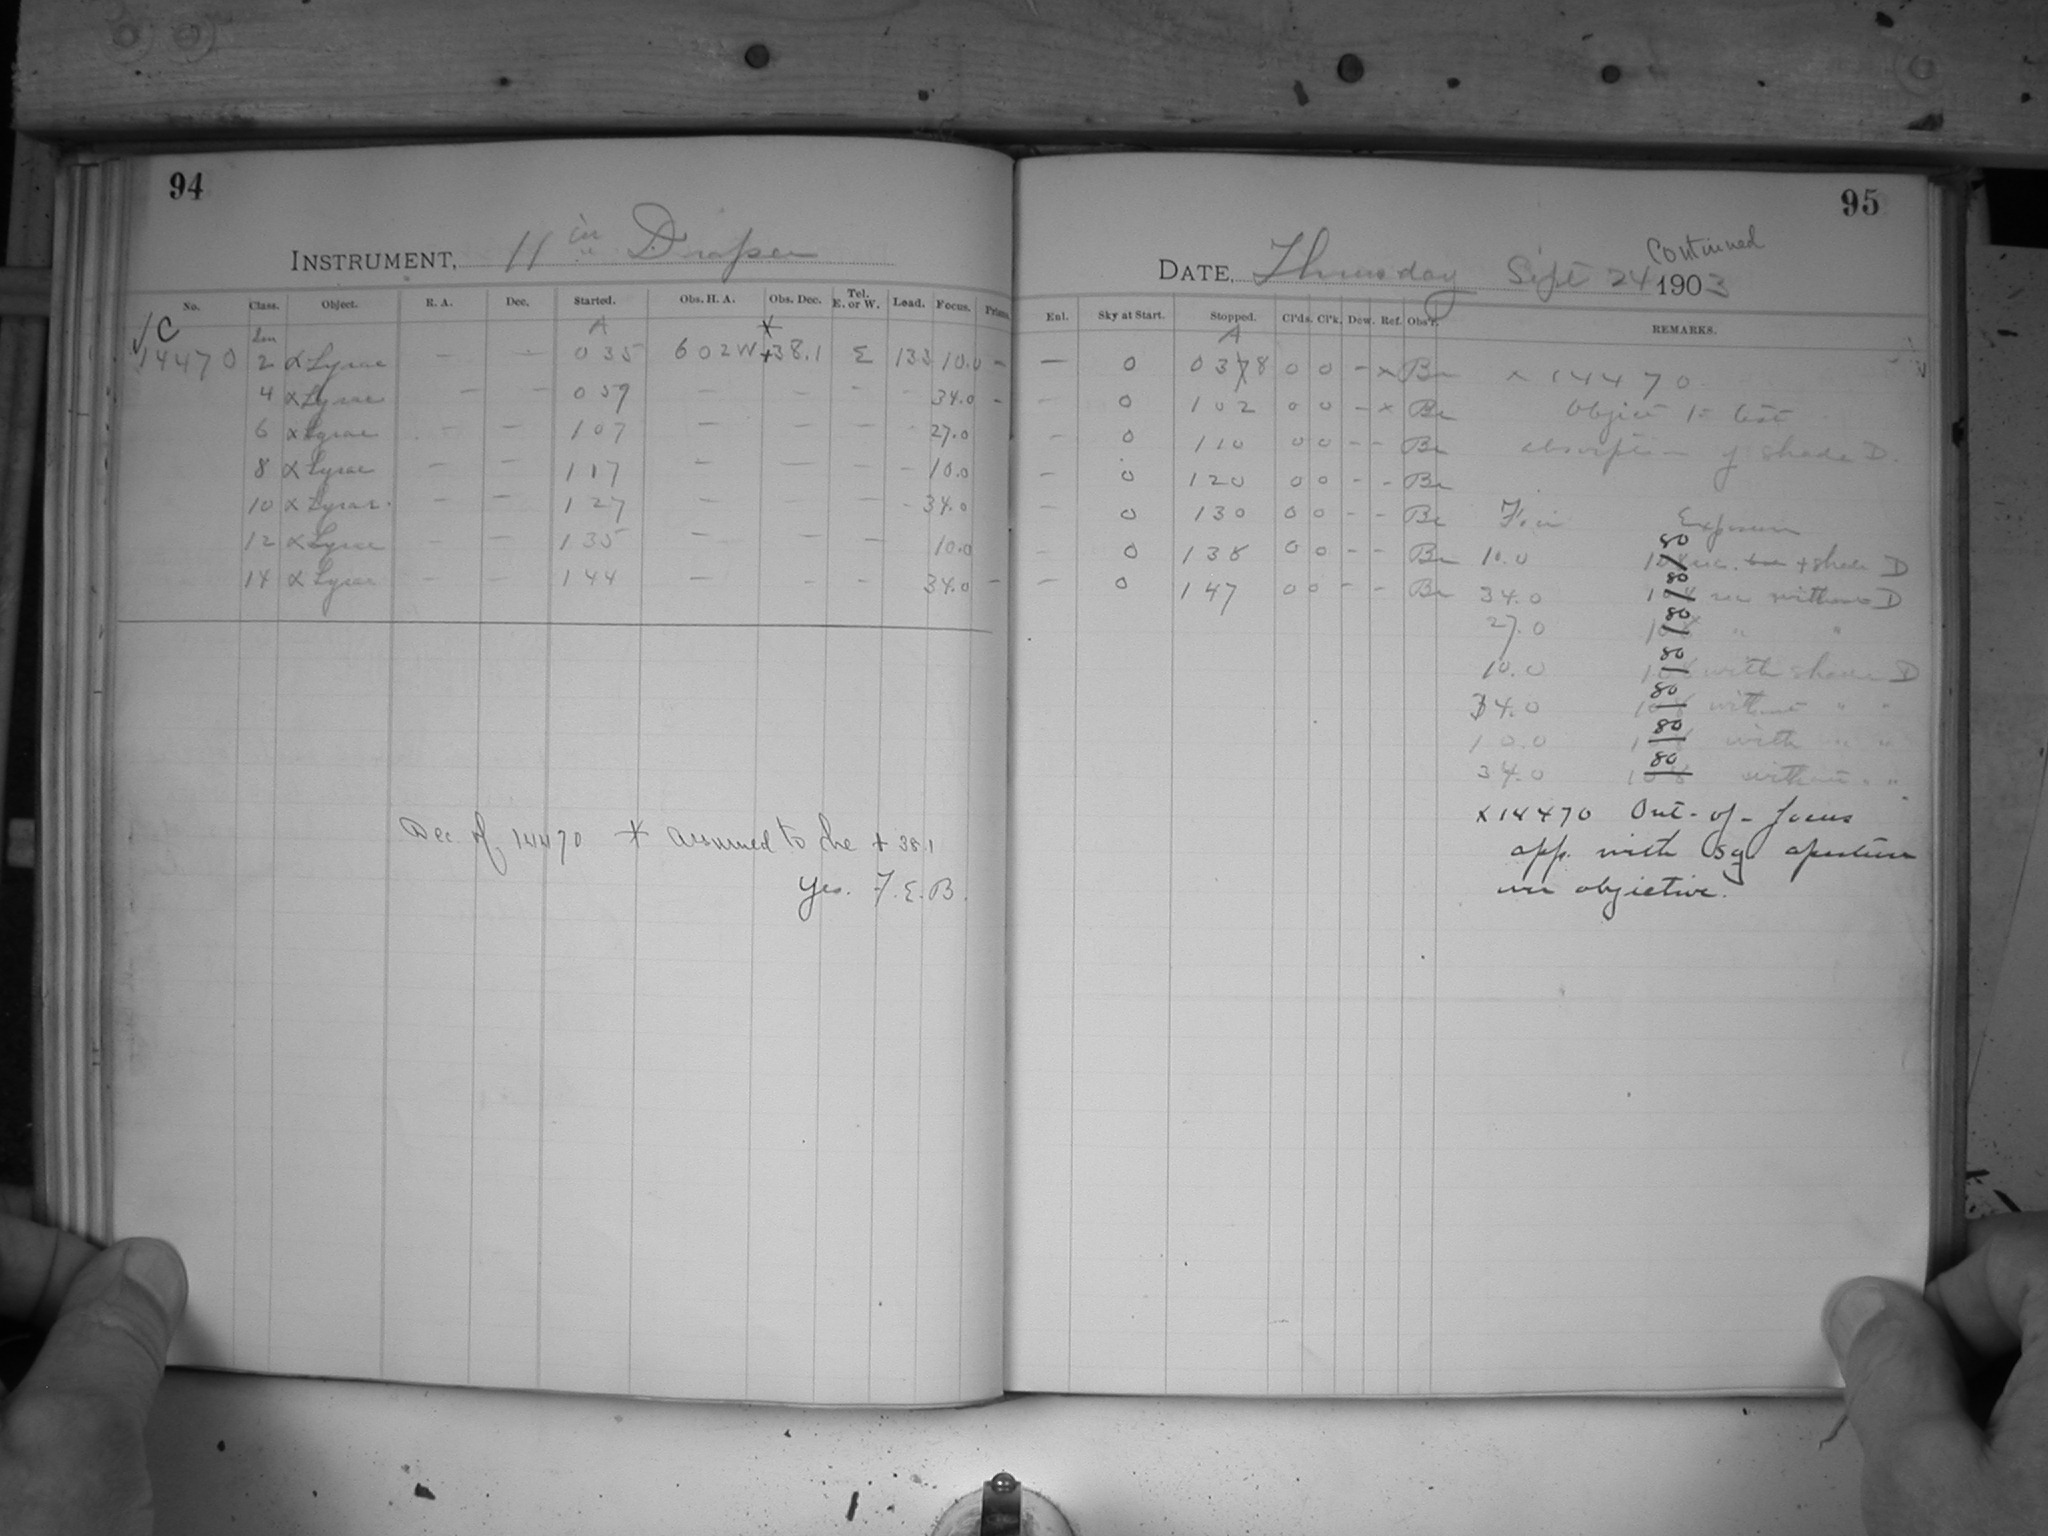 94
INSTRUMENT, 11 in Draper
No. Class. Object. R. A. Dec. Started. Obs. H. A. Obs. Dec. Tel. E. or W. Load. Focus. Prism.
√C A *
14470 2 α Lyrae — — 0 35 6 02 W +38.1 E 133 10.0 —
4 α Lyrae — — 0 59 — — — — 34.0 -
6 α Lyrae — — 1 07 — — — - 27.0
8 α Lyrae — — 1 17 — — — - 10.0
10 α Lyrae — — 1 27 — — — - 34.0
12 α Lyrae — — 1 35 — — — 10.0
14 α Lyrae — — 1 44 — - - 34.0 —
Dec of 14470 * assumed to be + 38.1
Yes. F. E. B.
95
Continued
DATE, Thursday Sept 24 1903
Enl. Sky at Start. Stopped. Cl'ds. Cl'k. Dew. Ref. Obs'r. REMARKS.
A
— 0 0 378 0 0 - x Br x 14470
- 0 1 02 0 0 - x Br Object to test
- 0 1 10 0 0 - - Br absorption of shade D.
- 0 1 20 0 0 - - Br
- 0 1 30 0 0 - - Br Exposure
- 0 1 38 0 0 - - Br 10.0 80 + shade D
- 0 1 47 0 0 - - Br 34.0 80 without D
27.0 80 " "
10.0 80 with shade D
34.0 80 without " "
10.0 80 with " "
34.0 80 without " "
x 14470 Out-of-focus
app. with sq. aperture
over objective.